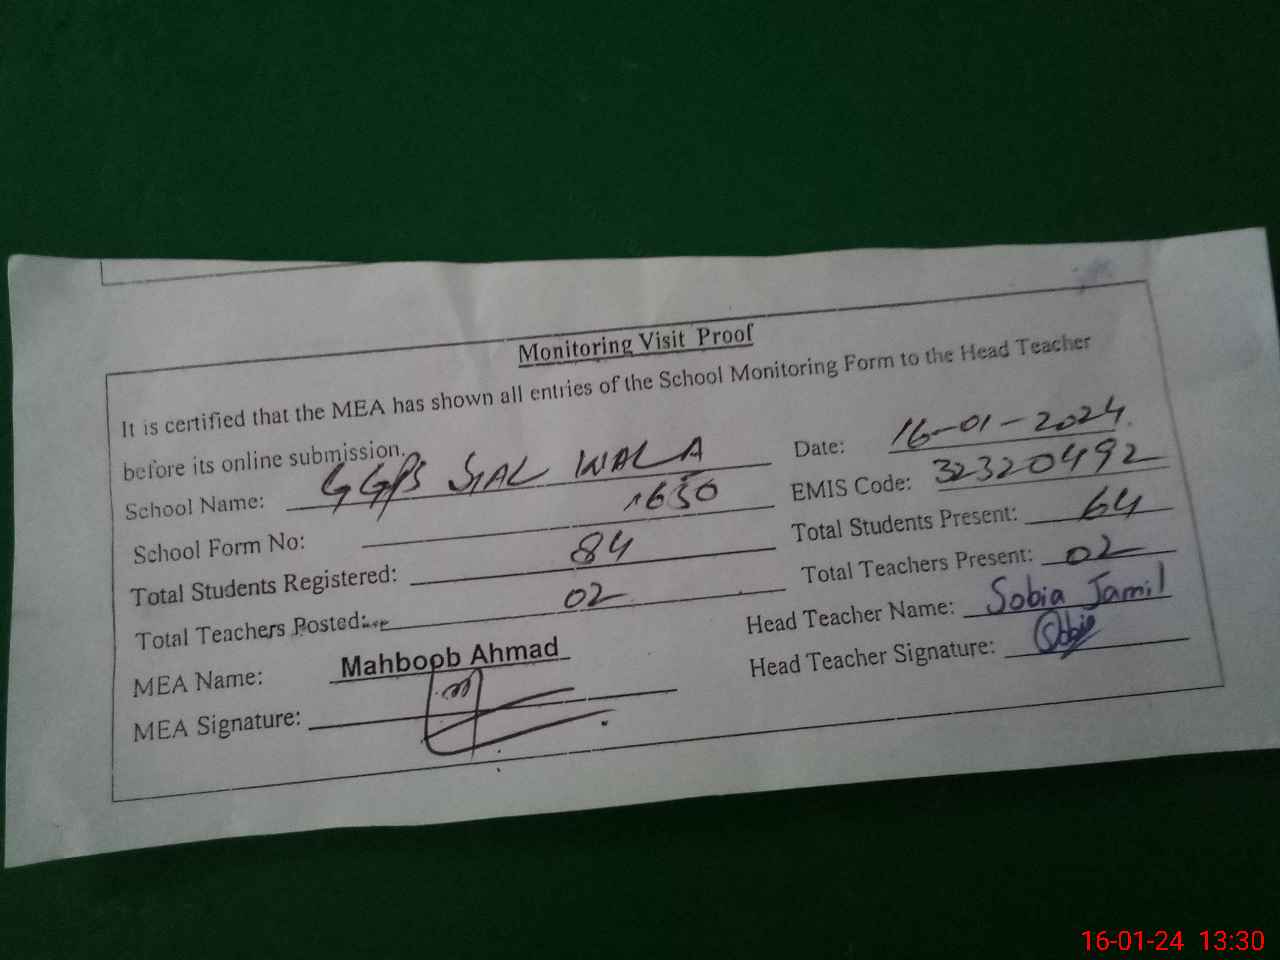 Monitoring Visit Proof
It is certified that the MEA has shown all entries of the School Monitoring Form to the Head Teacher
before its online submission.
School Name: GGPS SIAL WALA
Date: 16-01-2024
School Form No: 1650
EMIS Code: 32320492
Total Students Registered: 84
Total Students Present: 64
Total Teachers Posted: 02
Total Teachers Present: 02
MEA Name: Mahboob Ahmad
Head Teacher Name: Sobia Jamil
MEA Signature:
Head Teacher Signature: Sobia
16-01-24 13:30